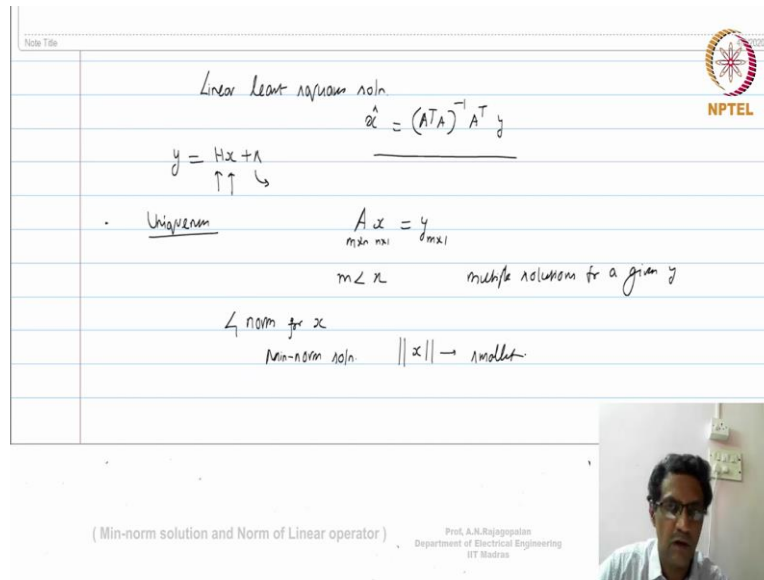 Note Title
2020
NPTEL
Linear least squares soln.
x̂ = (AᵀA)⁻¹ Aᵀ y
y = Hx + n
↑↑ ↳
. Uniqueness A x = y
m×n n×1 m×1
m < n multiple solutions for a given y
↳ norm for x
Min-norm soln. ||x|| → smallest.
( Min-norm solution and Norm of Linear operator )
Prof, A.N.Rajagopalan
Department of Electrical Engineering
IIT Madras